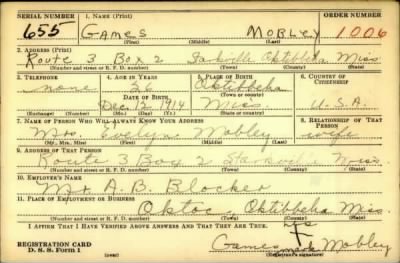 SERIAL NUMBER 1. NAME (Print) ORDER NUMBER
655 Games Mobley 1006
(First) (Middle) (Last)
2. ADDRESS (Print)
Route 3 Box 2 Starkville Oktibbeha Miss
(Number and street or R. F. D. number) (Town) (County) (State)
3. TELEPHONE 4. AGE IN YEARS 5. PLACE OF BIRTH 6. COUNTRY OF CITIZENSHIP
none 26 Oktibbeha
DATE OF BIRTH (Town or county)
Dec 12 1914 Miss. U.S.A.
(Exchange) (Number) (Mo.) (Day) (Yr.) (State or country)
7. NAME OF PERSON WHO WILL ALWAYS KNOW YOUR ADDRESS 8. RELATIONSHIP OF THAT PERSON
Mrs. Evelyn Mobley wife
(Mr., Mrs., Miss) (First) (Middle) (Last)
9. ADDRESS OF THAT PERSON
Route 3 Box 2 Starkville Miss.
(Number and street or R. F. D. number) (Town) (County) (State)
10. EMPLOYER'S NAME
Mr A. B. Blocker
11. PLACE OF EMPLOYMENT OR BUSINESS
Oktoc, Oktibbeha Miss
(Number and street or R. F. D. number) (Town) (County) (State)
I AFFIRM THAT I HAVE VERIFIED ABOVE ANSWERS AND THAT THEY ARE TRUE. his
REGISTRATION CARD Games mark Mobley
D. S. S. Form 1 (over) (Registrant's signature)